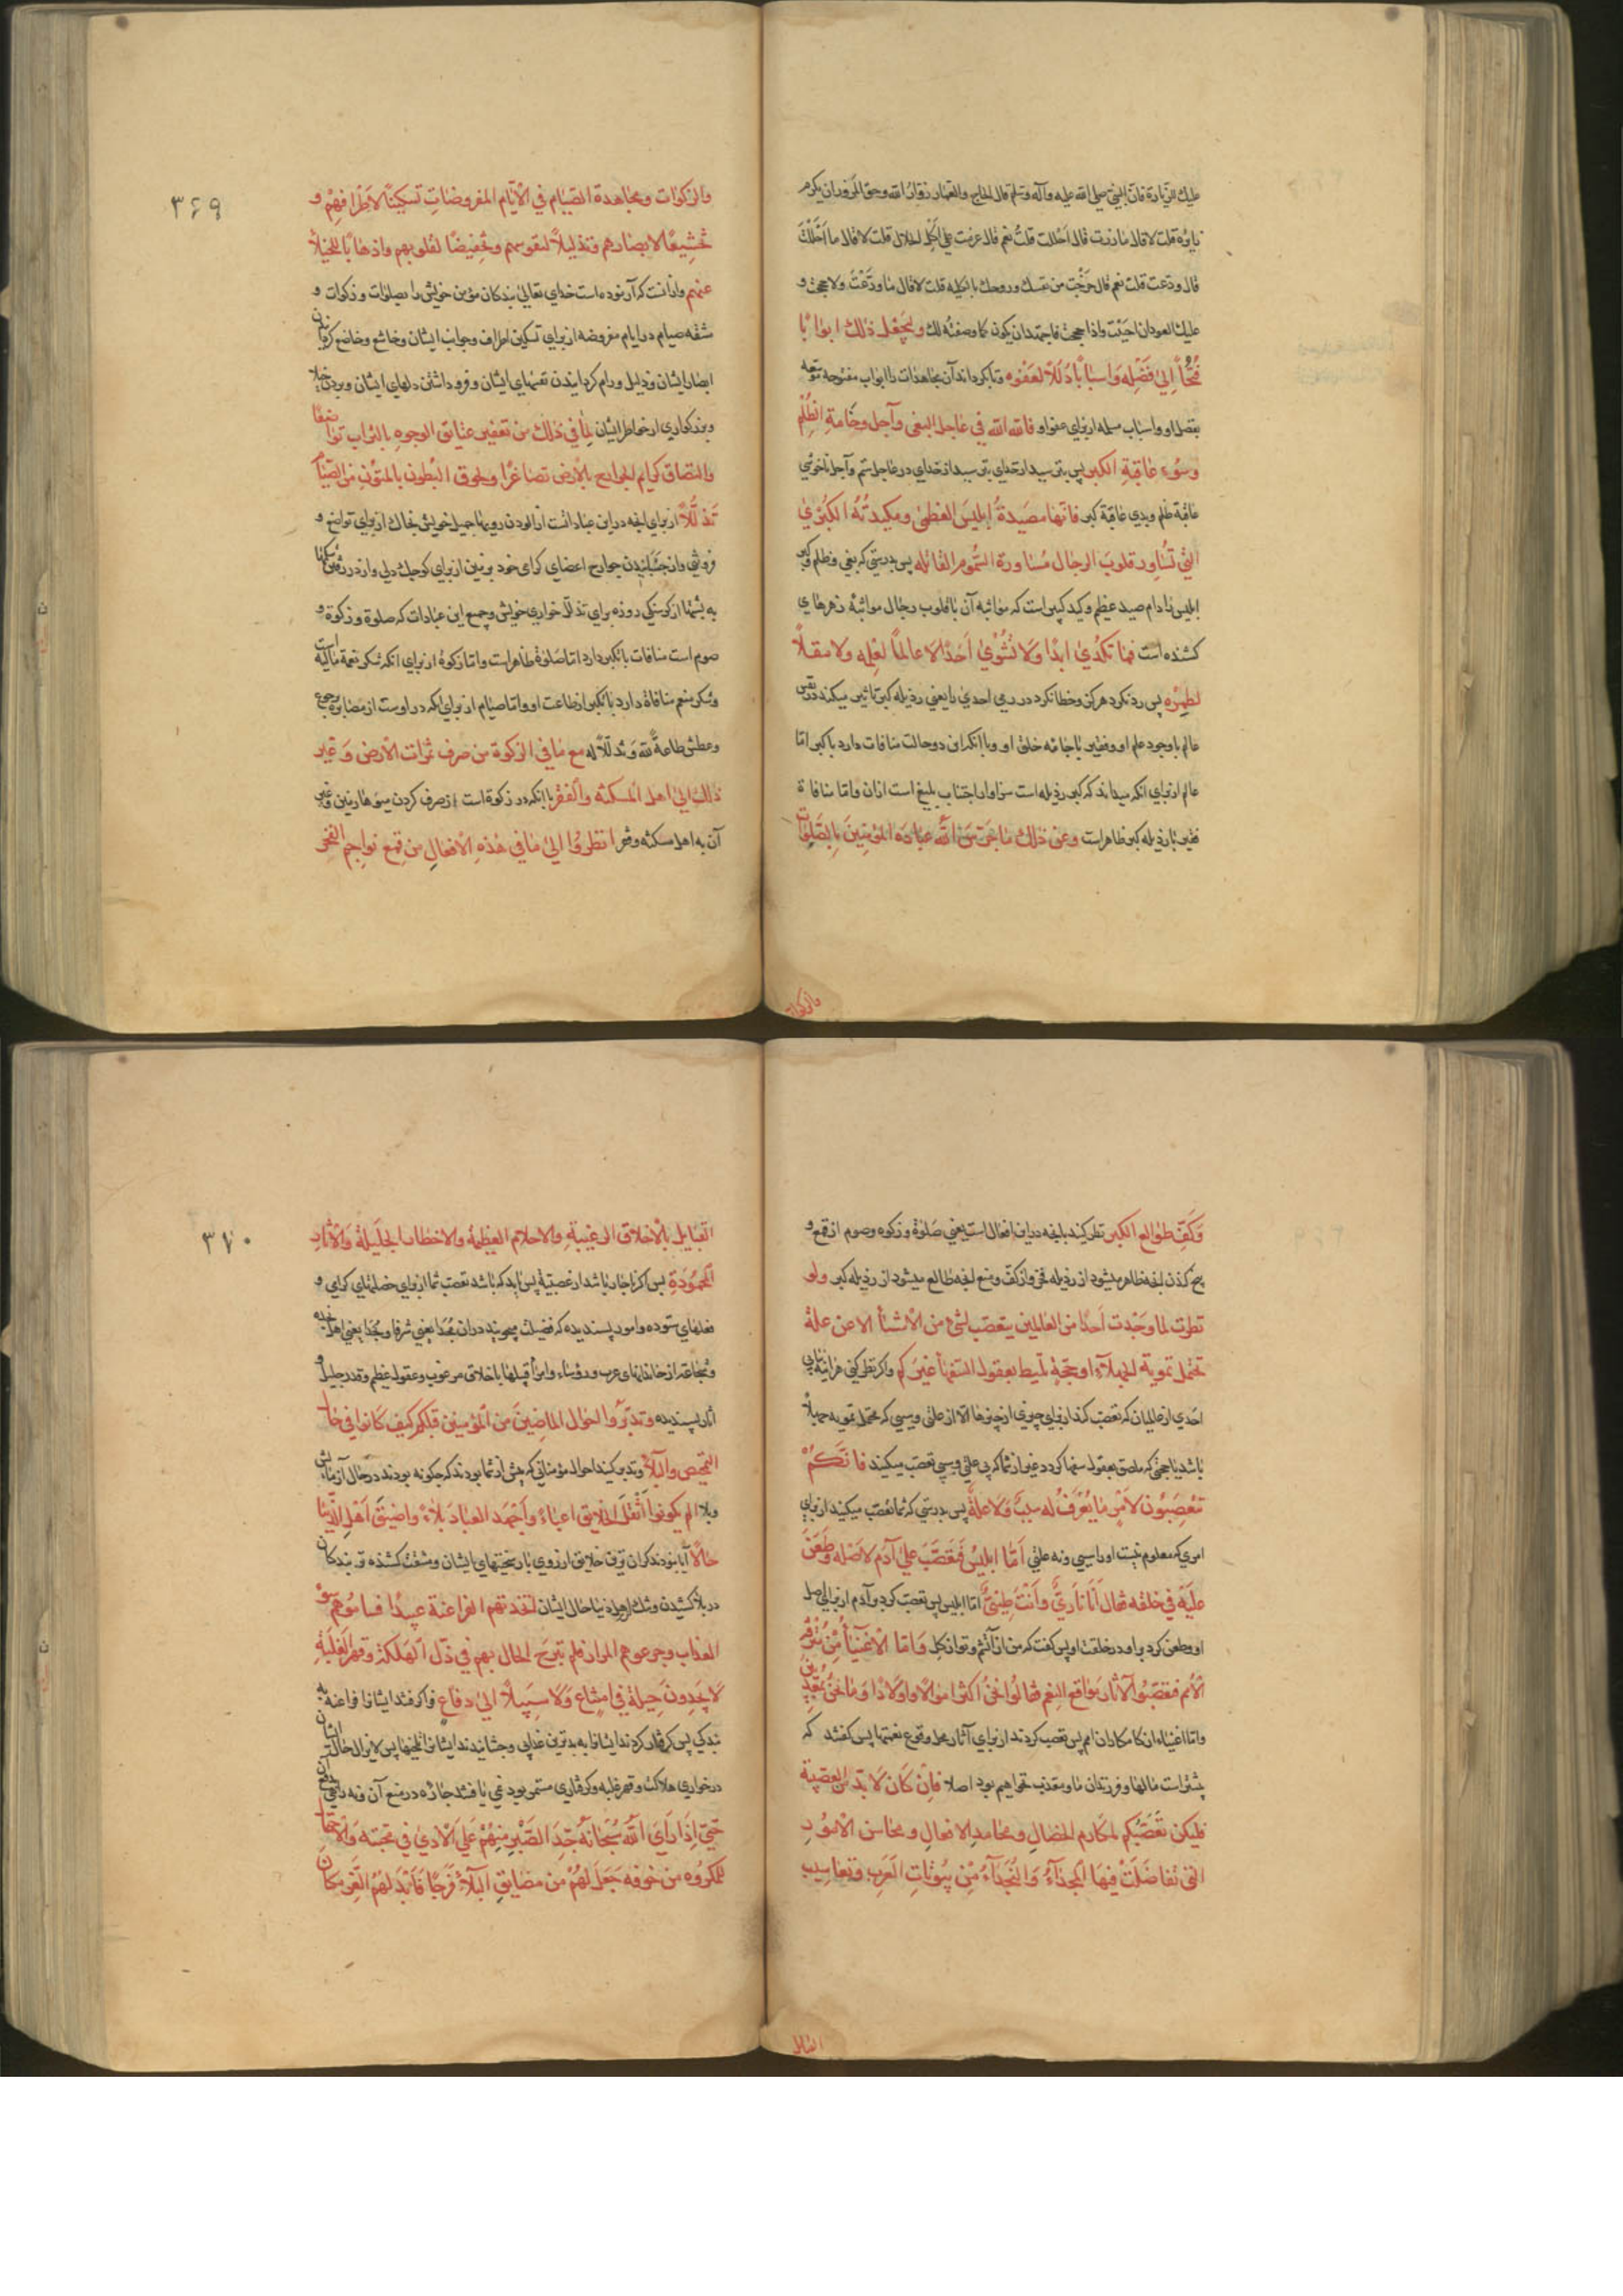 عليك الزيارة فان النبي صلى الله عليه وآله وسلم قال الحاج والعمار زوار الله وحق المزور ان يكرم
زايره قلت لا قال ما زرت قال احللت قلت نعم قال عزمت على اكل الحلال قلت لا قال ما احللت
قال ودعت قلت نعم قال خرجت من نفسك وروحك بالكلية قلت لا قال ما ودعت ولا حججت و
عليك العود ان احببت واذا حججت فاجتهد ان يكون كما وصفته لك وليجعل ذلك ابوابا
فُتُحًا الى فضله واسبابا ذُلُلًا لعفوه وتا بگرداند آن مجاهدات را ابواب مفتوحه متوجه
بفضل او واسباب سهله از برای عفو او فالله الله في عاجل البغي وآجل وخامة الظلم
وسوء عاقبة الكبر پس بترسید از خدای بترسید از خدای در عاجل ستم وآجل ناخوشی
عاقبة ظلم وبدی عاقبة كبر فانها مصيدة ابليس العظمى ومكيدته الكبرى
التي تساور قلوب الرجال مساورة السموم القاتلة پس بدرستی که بغی وظلم وكبر
ابلیس را دام صید عظیم وکید کبیر است که مواثبه آن با قلوب رجال مواثبهٔ زهرهای
کشنده است فما تكدي ابدا ولا تشوي احدا لا عالما لعلمه ولا مقلا
لطمره پس رد نکرد هرگز وخطا نکرد در رمی احدی را یعنی رذیله کبر تاثیر میکند در نفس
عالم با وجود علم او وفقیر با جامه خلق او وبا آنکه این دو حالت منافات دارد با کبر اما
عالم از برای آنکه میداند که کبر رذیله است سزاوار اجتناب بلیغ است از ان واما منافاة
فقیر با رذیله کبر ظاهر است وعن ذلك ما حرس الله عباده المؤمنين بالصلوات
والزكوات
۳۶۹
والزكوات ومجاهدة الصيام في الايام المفروضات تسكينا لاطرافهم و
تخشيعا لابصارهم وتذليلا لنفوسهم وتخفيضا لقلوبهم واذهابا للخيلاء
عنهم واز آنست که آزموده است خدای تعالی بندگان مؤمن خویش را بصلوات وزکوات و
مشقه صیام در ایام مفروضه از برای تسکین اطراف وجوانب ایشان وخاشع وخاضع گردانیدن
ابصار ایشان وذلیل ورام گردانیدن نفسهای ایشان وفرو داشتن دلهای ایشان وبردن خیلا
وبزرگواری از خواطر ایشان لما في ذلك من تعفير عتائق الوجوه بالتراب تواضعا
والتصاق كرايم الجوارح بالارض تصاغرا ولحوق البطون بالمتون من الصيام
تذللا از برای آنچه در این عبادات است از آلودن رویها جمیل خویش بخاک از برای تواضع و
فروتنی واز چسبانیدن جوارح اعضای گرامی خود بزمین از برای کوچک دلی واز در رفتن شکمها
به پشتها از گرسنگی روزه برای تذلل خواری خویش وجمیع این عبادات که صلوة وزکوة و
صوم است منافات با تکبر دارد اما صلوة ظاهر است واما زکوة از برای آنکه شکر نعمة مالیه است
وشکر منعم منافاة دارد با تکبر از طاعت او واما صیام از برای آنکه در اوست از مصابره جوع
وعطش طاعة لله وتذللا له مع ما في الزكوة من صرف ثمرات الارض وغير
ذلك الى اهل المسكنة والفقر با آنکه در زکوة است از صرف کردن میوهها زمین وغیر
آن به اهل مسکنه وفقر انظروا الى ما في هذه الافعال من قمع نواجم الفخر
وكفّ طوالع الكبر نظر کنید بآنچه در این افعال است یعنی صلوة وزکوه وصوم از قمع و
بیخ کندن آنچه ظاهر میشود از رذیله فخر واز کف ومنع آنچه طالع میشود از رذیله کبر ولو
نظرت لما وجدت احدا من العالمين يتعصب لشيء من الاشياء الا عن علة
تحتمل تموية الجهلاء او حجة تليط بعقول السفهاء غيركم واگر نظر کنی هر آینه نیابی
احدی از عالمیان که تعصب کند از برای چیزی از چیزها الا از علتی وسببی که محتمل تمویه جهلا
باشد یا حجتی که ملصق بعقول سفها گردد غیر از شما که بی علتی وسببی تعصب میکنید فانكم
تتعصبون لامر ما يعرف له سبب ولا علة پس بدرستی که شما تعصب میکنید از برای
امری که معلوم نیست او را سببی ونه علتی اما ابليس فتعصب على آدم لاصله وطعن
عليه في خلقه فقال انا ناري وانت طيني اما ابلیس پس تعصب کرد بر آدم از برای اصل
او وطعن کرد بر او در خلقت او پس گفت که من از آتشم وتو از گل واما الاغنياء من مترفة
الامم فتعصبوا لآثار مواقع النعم فقالوا نحن اكثر اموالا واولادا وما نحن بمعذبين
واما اغنیاء از کامکاران امم پس تعصب کردند از برای آثار محل وقوع نعمتها پس گفتند که
بیشتر است مالها وفرزندان ما ومعذب نخواهیم بود اصلا فان كان لا بد من العصبية
فليكن تعصبكم لمكارم الخصال ومحامد الافعال ومحاسن الامور
التي تفاضلت فيها المجداء والنجداء من بيوتات العرب ويعاسيب
القبايل
۳۷۰
القبايل بالاخلاق الرغيبة والاحلام العظيمة والاخطار الجليلة والآثار
المحمودة پس اگر ناچار باشد از عصبیة پس باید که باشد تعصب شما از برای خصلتهای گرامی و
فعلهای ستوده وامور پسندیده که فضیلت میجویند در ان مجدا یعنی شرفا ونجدا یعنی اهل نجده
وشجاعة از خاندانهای عرب ورؤساء وامرا قبیلها باخلاق مرغوب وعقول عظیم وقدر جلیل و
آثار پسندیده وتدبروا احوال الماضين من المؤمنين قبلكم كيف كانوا في حال
التمحيص والبلاء وتدبر کنید احوال مؤمنانی که پیش از شما بودند که چگونه بودند در حال آزمایش
وبلا الم يكونوا اثقل الخلايق اعباء واجهد العباد بلاء واضيق اهل الدنيا
حالا آیا نبودند گران ترین خلایق از روی بار سختیهای ایشان ومشقت کشنده تر بندگان
در بلا کشیدن وتنگ تر اهل دنیا حال ایشان اتخذتهم الفراعنة عبيدا فساموهم سوء
العذاب وجرعوهم المرار فلم تبرح الحال بهم في ذل الهلكة وقهر الغلبة
لا يجدون حيلة في امتناع ولا سبيلا الى دفاع فرا گرفتند ایشان را فراعنه به
بندگی پس گرفتار کردند ایشانرا به بدترین عذابی وچشانیدند ایشانرا تلخیها پس لایزال حال ایشان
در خواری هلاکت وقهر غلبه وگرفتاری مستمر بود نمی یافتند چاره در منع آن ونه راهی بدفع آن
حتى اذا راى الله سبحانه جد الصبر منهم على الاذى في محبته والاحتمال
للمكروه من خوفه جعل لهم من مضايق البلاء فرجا فابدلهم العز مكان